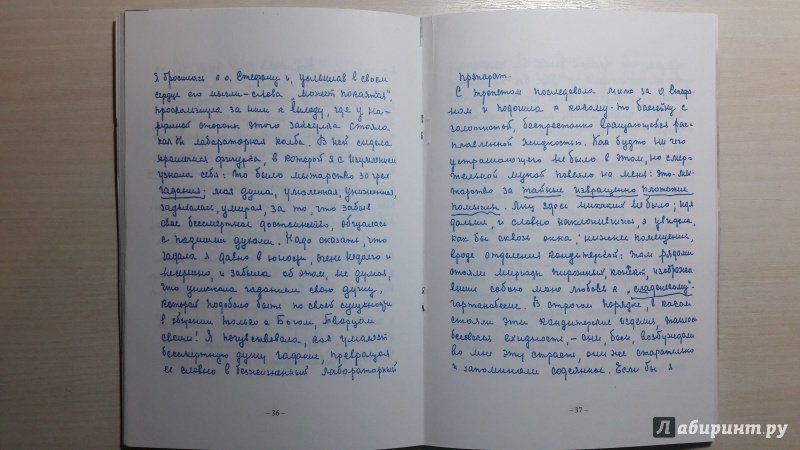 Я бросилась к о. Стефану и, услышав в своем
сердце его мысли-слова "может покаяться",
проскользнула за ним к выходу, где у на-
ружной стороны этого закоулка стояла
как бы лабораторная колба. В ней сидела
крошечная фигурка, в которой я с изумлением
узнала себя: то было мытарство за грех
гадания; моя душа, умаленная, униженная,
задыхалась, умирая, за то, что забыв
свое бессмертное достоинство, общалась
с падшими духами. Надо сказать, что
гадала я давно в юности, очень недолго и
несерьезно, и забыла об этом, не думая,
что унижала гаданием свою душу,
которой подобало быть по своей сущности
в общении только с Богом, Творцом
своим! Я почувствовала, как умаляет
бессмертную душу гадание, превращая
ее словно в безжизненный лабораторный
- 36 -
препарат.
С трепетом последовала мимо за о. Стефа-
ном и подошла к какому-то бассейну с
золотистой, беспрестанно вращающейся рас-
плавленной жидкостью. Как будто ничего
устрашающего не было в этом, но смер-
тельной мукой повеяло на меня: это мы-
тарство за тайные извращенно плотские
помыслы. Лиц здесь никаких не было; идя
дальше, и словно наклонившись, я увидела,
как бы сквозь окна, нижнее помещение,
вроде отделения кондитерской: там рядами
стояли мириады пирожных, конфет, изобража-
вших собою мою любовь к "сладенькому"-
гортанобесие. В строгом порядке, в каком
стояли эти кондитерские изделия, таилась
бесовская ехидность, - они, бесы, возбуждали
во мне эту страсть, они же старательно
и запоминали содеянное. Если бы я
- 37 -
Лабиринт.ру